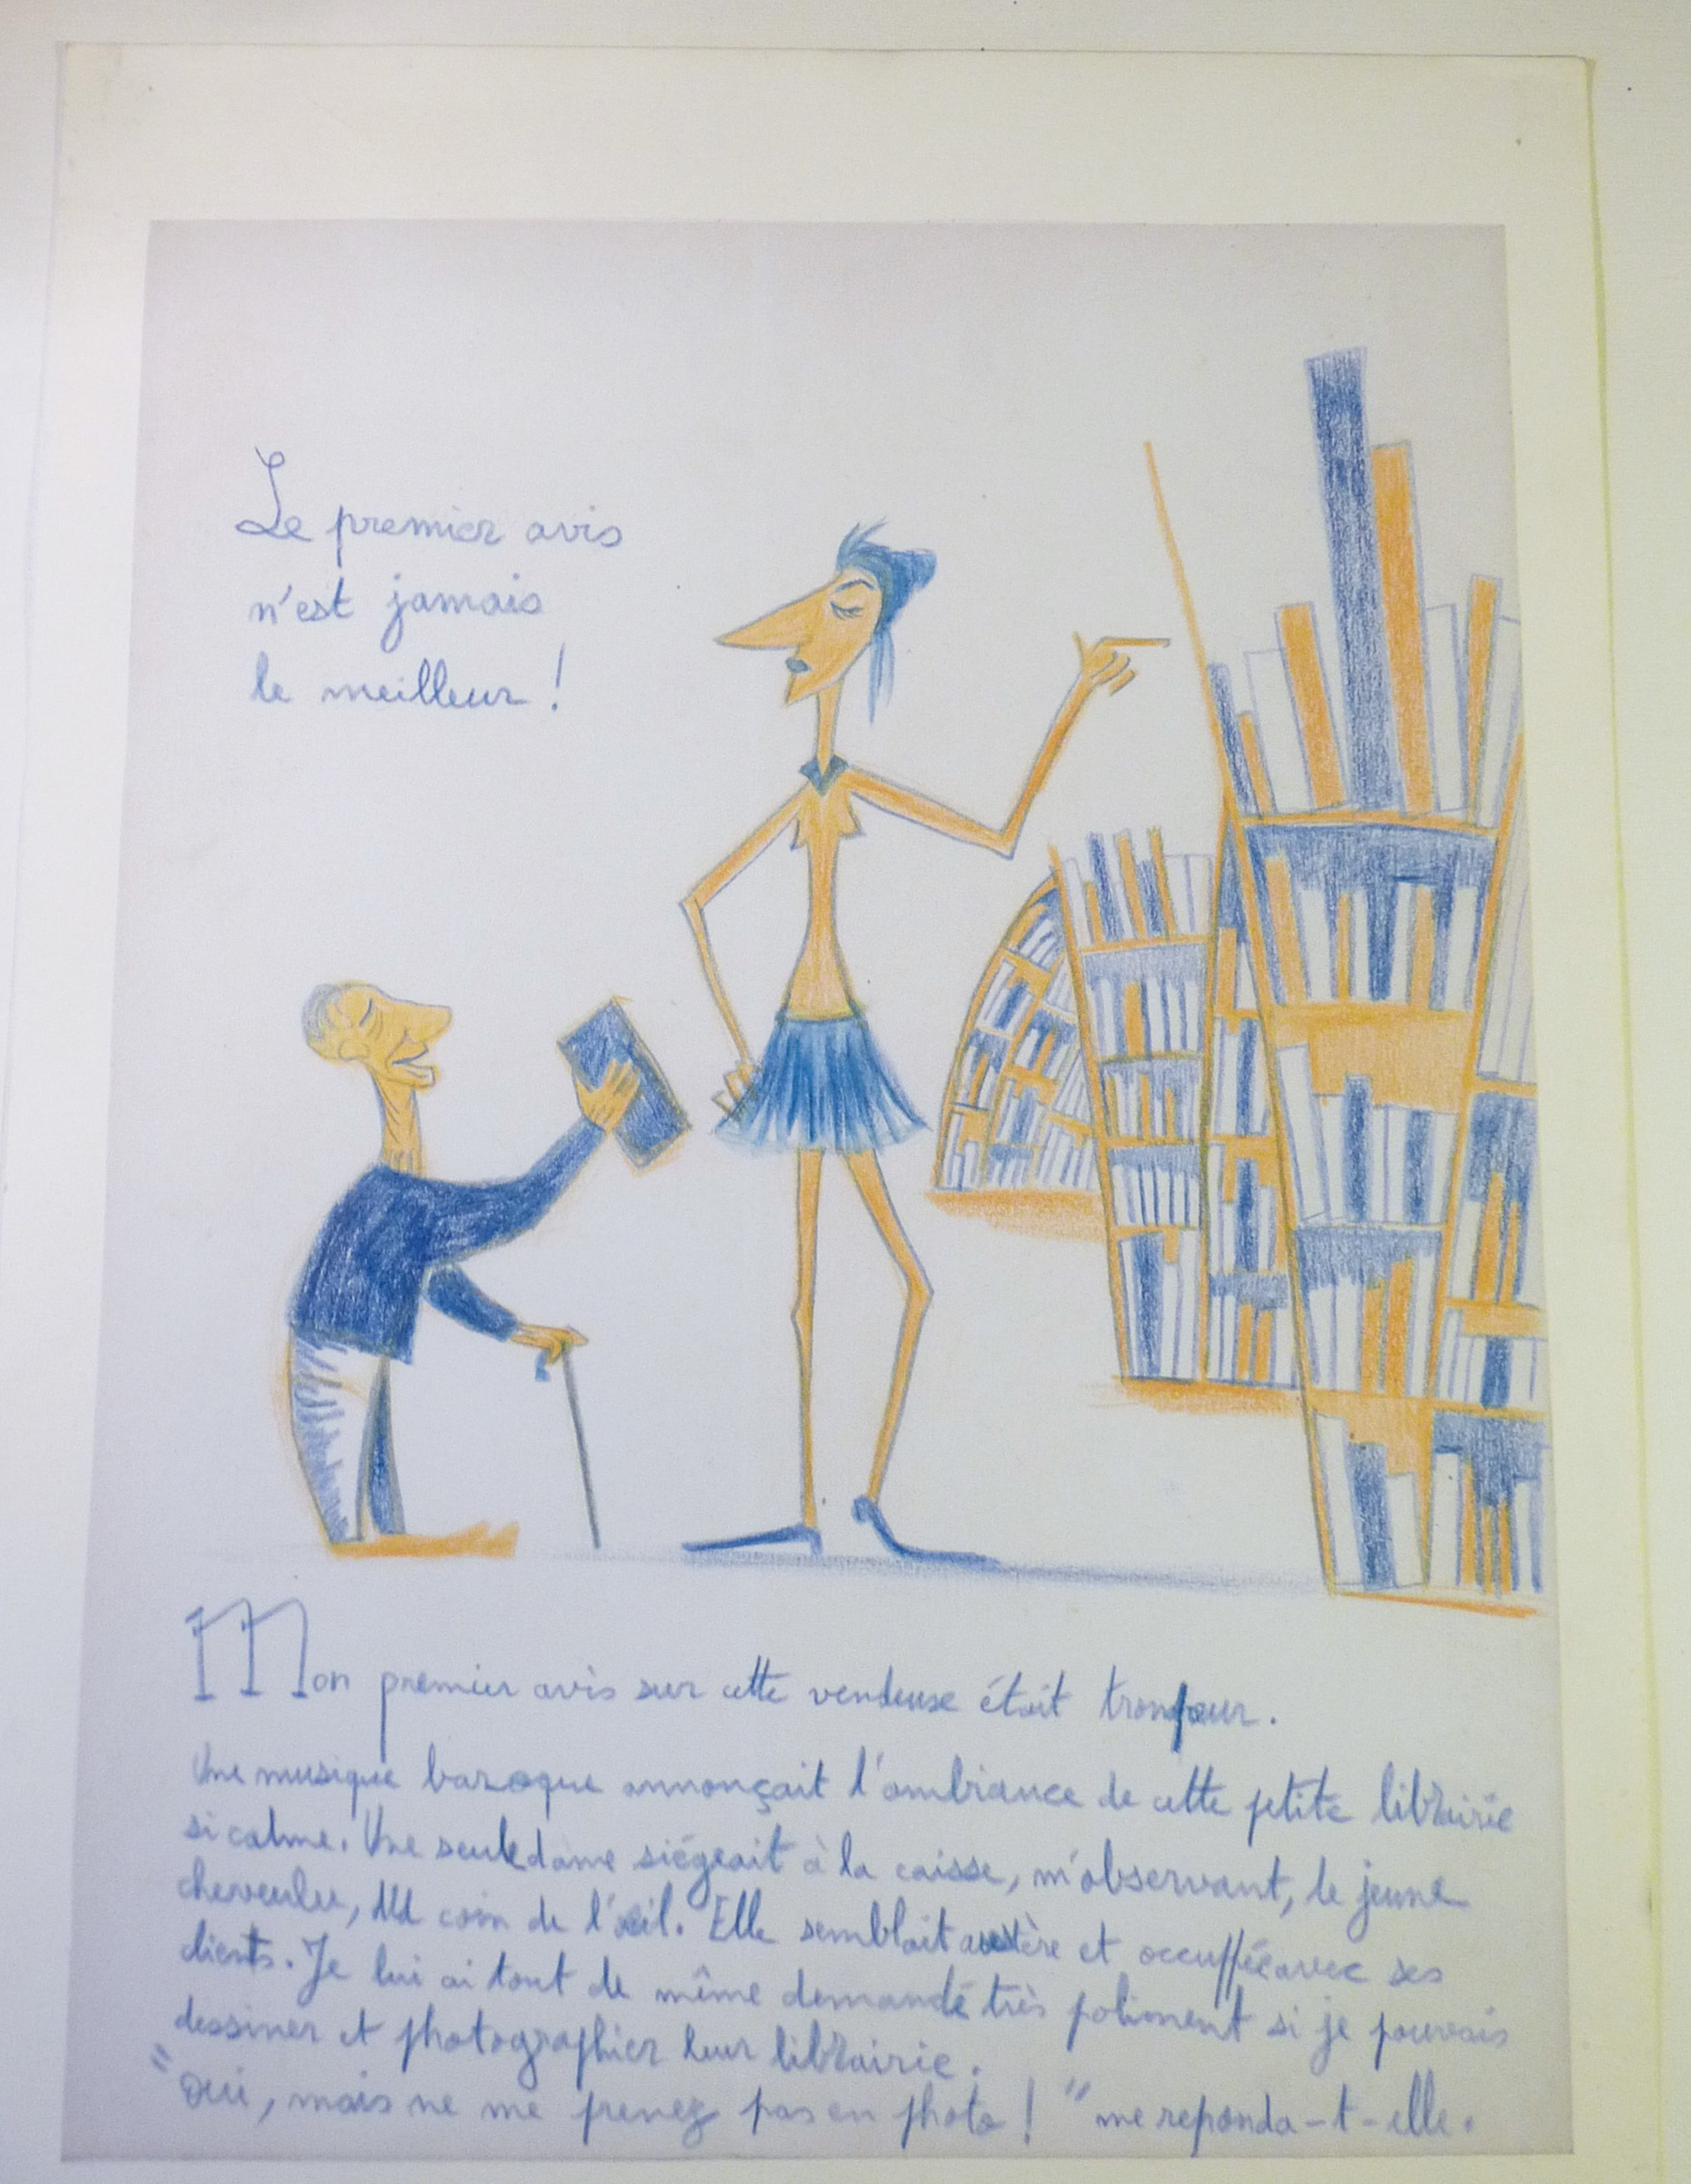 Le premier avis
n'est jamais
le meilleur !
Mon premier avis sur cette vendeuse était trompeur.
Une musique baroque annonçait l'ambiance de cette petite librairie
si calme. Une seule dame siégeait à la caisse, m'observant, le jeune
chevenlu, du coin de l'œil. Elle semblait austère et occuppée avec ses
clients. Je lui ai tout de même demandé très poliment si je pouvais
dessiner et photographier leur librairie.
"Oui, mais ne me prenez pas en photo ! " me reponda-t-elle.